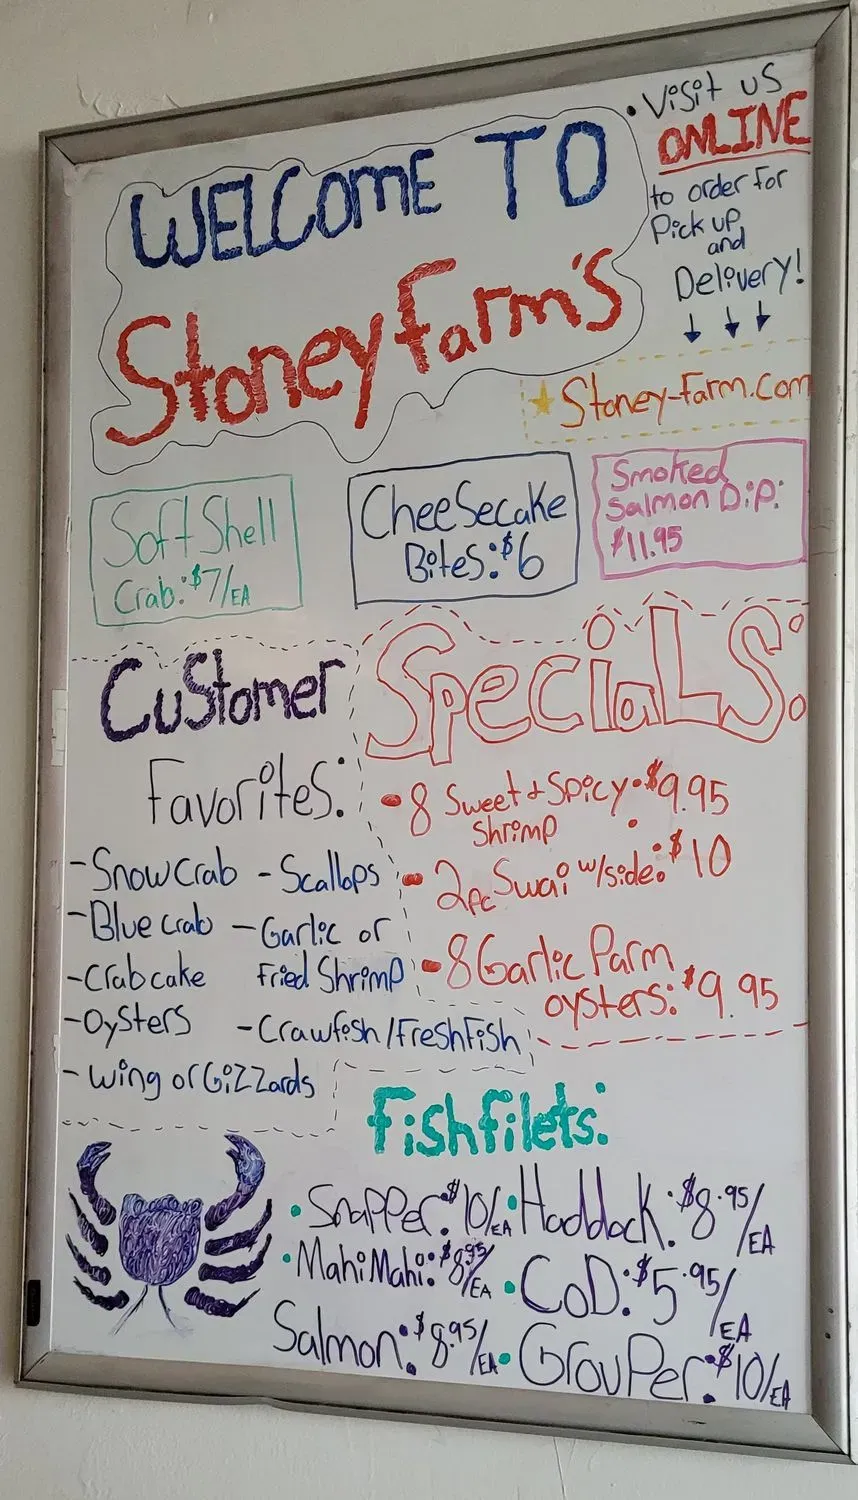 WELCOME TO
Stoney Farm's
• Visit us
ONLINE
to order for
Pick up
and
Delivery!
Stoney-Farm.com
Soft Shell
Crab: $7/EA
Cheesecake
Bites: $6
Smoked
Salmon Dip:
$11.95
Customer
Favorites:
- Snow crab
- Blue crab
- Crabcake
- Oysters
- Wing or Gizzards
- Scallops
- Garlic or
Fried Shrimp
- Crawfish/Fresh Fish
Specials:
• 8 Sweet & Spicy • $9.95
Shrimp
• 2pc Swai w/side: $10
• 8 Garlic Parm
oysters: $9.95
Fish filets:
• Snapper: $10/EA
• Mahi Mahi: $8.95/EA
Salmon: $8.95/EA
• Haddock: $8.95/EA
• Cod: $5.95/EA
• Grouper: $10/EA